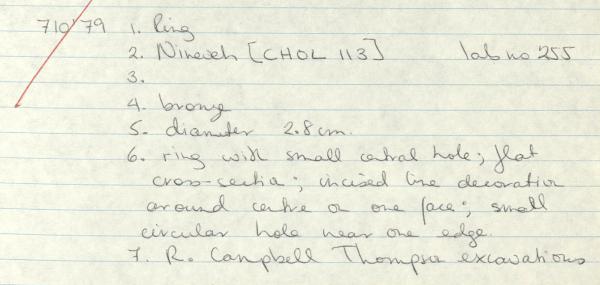 710'79 1. Ring
2. Nineveh [CHOL 113] lab no 255
3.
4. bronze
5. diameter 2.8cm.
6. ring with small central hole; flat
cross-section; incised line decoration
around centre on one face; small
circular hole near one edge.
7. R. Campbell Thompson excavations